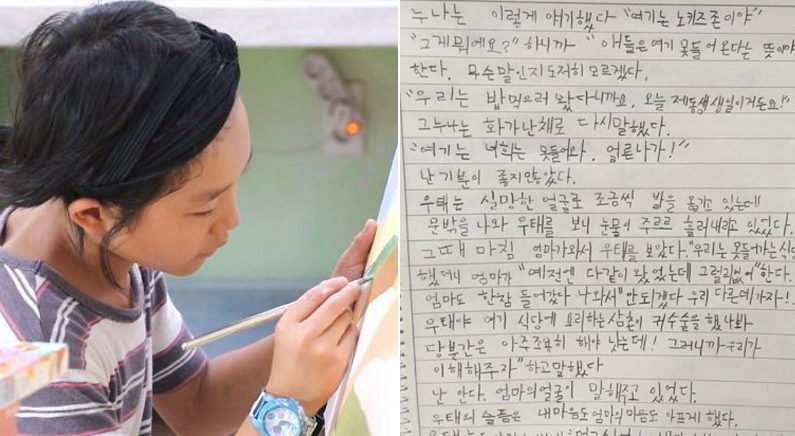 누나는 이렇게 얘기했다 "여기는 노키즈존이야"
"그게뭐에요?" 하니까 "애들은 여기 못들어 온다는 뜻이야
한다. 무슨말인지도저히 모르겠다.
"우리는 밥먹으러 왔다니까요. 오늘 제동생생일이거든요!"
그누나는 화가난채로 다시말했다.
"여기는 너희는 못들어와. 얼른나가!"
난 기분이 좋지안았다.
우태는 실망한 얼굴로 조금씩 발을 옮기고 있는데
문밖을 나와 우태를 보니 눈물이 주르르 흘러내리고 있었다.
그때 마침 엄마가와서 우태를 보았다. "우리는 못들어가는 식당
했더니 엄마가 "예전엔 다같이 왔었는데 그럴리없어" 한다.
엄마도 한참 들어갔다 나와서 "안되겠다 우리 다른데가자!
우태야 여기 식당에 요리하는 삼촌이 귀수술을 했나봐
당분간은 아주조용히 해야 낫는데! 그러니까우리가
이해해주자" 하고말했다
난 안다. 엄마의얼굴이 말해주고 있었다.
우태의 슬픔은 내마음도 엄마의마음도 아프게 했다.